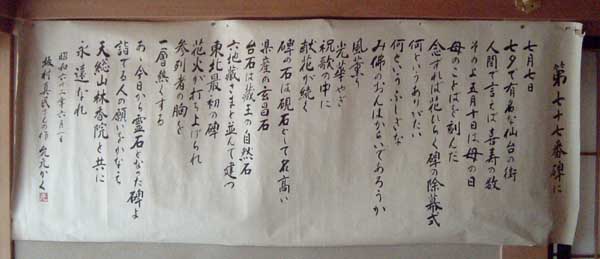 第七十七番碑に
七月七日
七夕で有名な仙台の街
人間で言えば喜寿の数
そのよ五月十日は母の日
母のことばを刻んだ
念ずれば花ひらく碑の除幕式
何というありがたい
何というふしぎな
み佛のおんはからいであろうか
風薫り
光華やぎ
祝歌の中に
献花が続く
碑の石は硯石として名高い
県産の玄昌石
台石は蔵王の自然石
六地蔵さまと並んで建つ
東北最初の碑
花火が打ち上げられ
参列者の胸を
一層熱くする
あゝ今日から霊石となった碑よ
詣でる人の願いをかなえ
天総山林香院と共に
永遠なれ
昭和六十二年六月一日
坂村真民